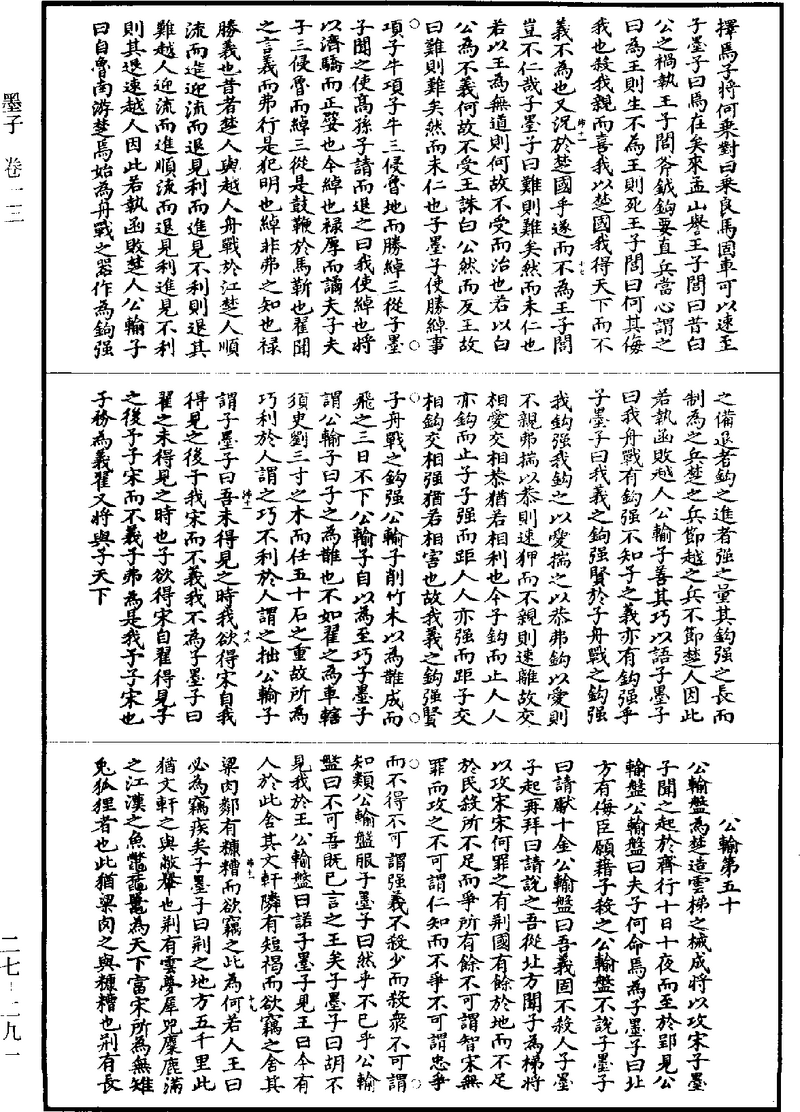 墨子 卷一三
二七－二九一
擇焉子將何乘對曰乘良馬固車可以速至
子墨子曰焉在矣來孟山譽王子閭曰昔白
公之禍執王子閭斧鉞鉤要直兵當心謂之
曰為王則生不為王則死王子閭曰何其侮
我也殺我親而喜我以楚國我得天下而不
義不為也又況於楚國乎遂而不為王子閭
豈不仁哉子墨子曰難則難矣然而未仁也
若以王為無道則何故不受而治也若以白
公為不義何故不受王誅白公然而反王故
曰難則難矣然而未仁也子墨子使勝綽事
項子牛項子牛三侵魯地而勝綽三從子墨
子聞之使高孫子請而退之曰我使綽也將
以濟驕而正嬖也今綽也祿厚而譎夫子夫
子三侵魯而綽三從是鼓鞭於馬靳也翟聞
之言義而弗行是犯明也綽非弗之知也祿
勝義也昔者楚人與越人舟戰於江楚人順
流而進迎流而退見利而進見不利則退其
難越人迎流而進順流而退見利進見不利
則其退速越人因此若執函敗楚人公輸子
曰自魯南游楚焉始為舟戰之器作為鉤强
之備退者鉤之進者强之量其鉤强之長而
制為之兵楚之兵節越之兵不節楚人因此
若執函敗越人公輸子善其巧以語子墨子
曰我舟戰有鉤强不知子之義亦有鉤强乎
子墨子曰我義之鉤强賢於子舟戰之鉤强
我鉤强我鉤之以愛揣之以恭弗鉤以愛則
不親弗揣以恭則速狎而不親則速離故交
相愛交相恭猶若相利也今子鉤而止人人
亦鉤而止子子强而距人人亦强而距子交
相鉤交相强猶若相害也故我義之鉤强賢
子舟戰之鉤强公輸子削竹木以為䧿成而
飛之三日不下公輸子自以為至巧子墨子
謂公輸子曰子之為䧿也不如翟之為車轄
須臾劉三寸之木而任五十石之重故所為
巧利於人謂之巧不利於人謂之拙公輸子
謂子墨子曰吾未得見之時我欲得宋自我
得見之後予我宋而不義我不為子墨子曰
翟之未得見之時也子欲得宋自翟得見子
之後予子宋而不義子弗為是我予子宋也
子務為義翟又將與子天下
公輸第五十
公輸盤為楚造雲梯之械成將以攻宋子墨
子聞之起於齊行十日十夜而至於郢見公
輸盤公輸盤曰夫子何命焉為子墨子曰北
方有侮臣願藉子殺之公輸盤不說子墨子
曰請獻十金公輸盤曰吾義固不殺人子墨
子起再拜曰請說之吾從北方聞子為梯將
以攻宋宋何罪之有荊國有餘於地而不足
於民殺所不足而爭所有餘不可謂智宋無
罪而攻之不可謂仁知而不爭不可謂忠爭
而不得不可謂强義不殺少而殺衆不可謂
知類公輸盤服子墨子曰然乎不已乎公輸
盤曰不可吾既已言之王矣子墨子曰胡不
見我於王公輸盤曰諾子墨子見王曰今有
人於此舍其文軒隣有短褐而欲竊之舍其
梁肉鄰有糠糟而欲竊之此為何若人王曰
必為竊疾矣子墨子曰荊之地方五千里此
猶文軒之與敝轝也荊有雲夢犀兕麋鹿滿
之江漢之魚鼈黿鼉為天下富宋所為無雉
兔狐狸者也此猶梁肉之與糠糟也荊有長